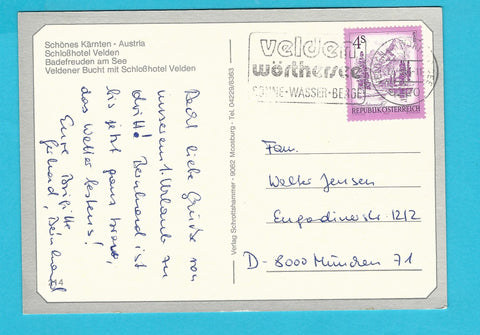 Schönes Kärnten · Austria
Schloßhotel Velden
Badefreuden am See
Veldener Bucht mit Schloßhotel Velden
velden
wörthersee
SONNE-WASSER-BERGE
4S
REPUBLIK ÖSTERREICH
Verlag Schrottshammer · 9062 Moosburg · Tel. 04229/8363
Recht liebe Grüße von
unserem 1. Urlaub zu
dritt! Bernhard ist
bis jetzt ganz brav,
das Wetter bestens!
Eure Brigitte
Gerhard, Bernhard
Fam.
Walter Jensen
Engadinerstr. 12/2
D-8000 München 71